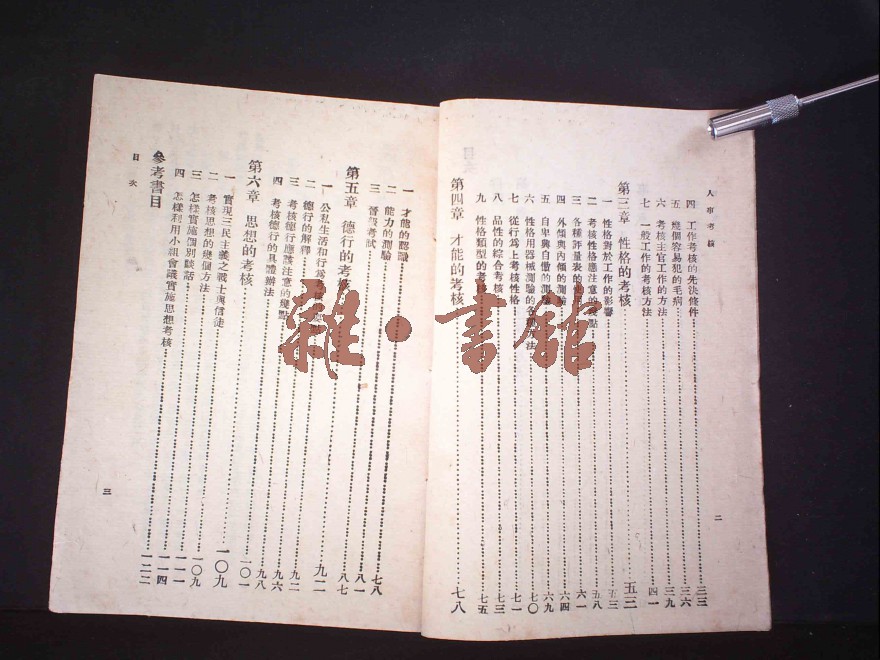 人事考核
四 工作考核的先決條件……三三
五 幾個容易犯的毛病……三六
六 考核主官工作的方法……三九
七 一般工作的考核方法……四一
第三章 性格的考核……五三
一 性格對於工作的影響……五三
二 考核性格應注意的要點……五八
三 各種評量表的使用……六一
四 外傾與內傾的測驗……六四
五 自卑與自傲的測驗……六九
六 性格用器械測驗的各種方法……七〇
七 從行爲上考核性格……七一
八 品性的綜合考核……七三
九 性格類型的考核……七五
第四章 才能的考核……七八
二
一 才能的認識……七八
二 能力的測驗……八一
三 晉級考試……八七
第五章 德行的考核……九二
一 公私生活和行爲……九二
二 德行的解釋……九六
三 考核德行應該注意的幾點……九八
四 考核德行的具體辦法……一〇一
第六章 思想的考核……一〇九
一 實現三民主義之戰士與信徒……一〇九
二 考核思想的幾個方法……一一一
三 怎樣實施個別談話……一一四
四 怎樣利用小組會議實施思想考核……一二二
參考書目
目次
三
雜·書館